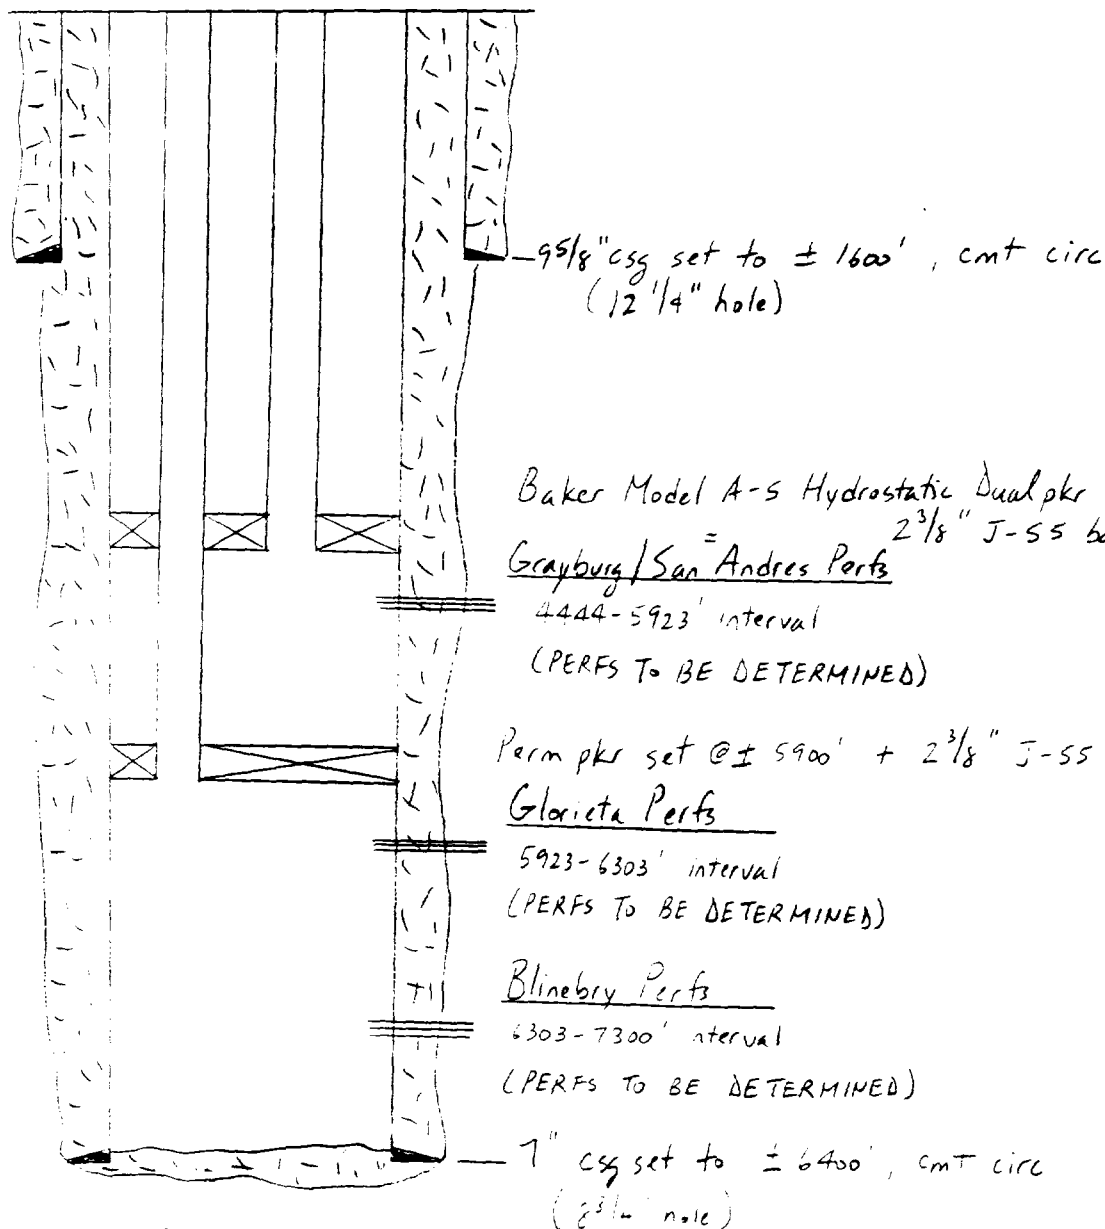 9 5/8" csg set to ± 1600', cmt circ
(12 1/4" hole)
Baker Model A-5 Hydrostatic Dual pkr
= 2 3/8" J-55
Grayburg/San Andres Perfs
4444-5923' interval
(PERFS TO BE DETERMINED)
Perm pkr set @ ± 5900' + 2 3/8" J-55
Glorieta Perfs
5923-6303' interval
(PERFS TO BE DETERMINED)
Blinebry Perfs
6303-7300' nterval
(PERFS TO BE DETERMINED)
7" csg set to ± 6400', cmt circ
(8 3/4" hole)